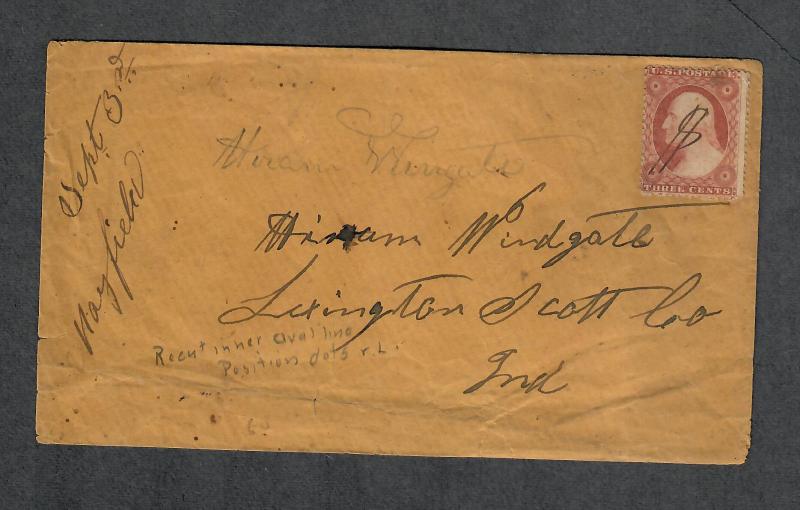 Sept. 3rd
Mayfield
U.S. POSTAGE
THREE CENTS
Hiram Wingate
Hiram Windgate
Lexington Scott Co
Ind
Recut inner oval line
Position dots r. L.